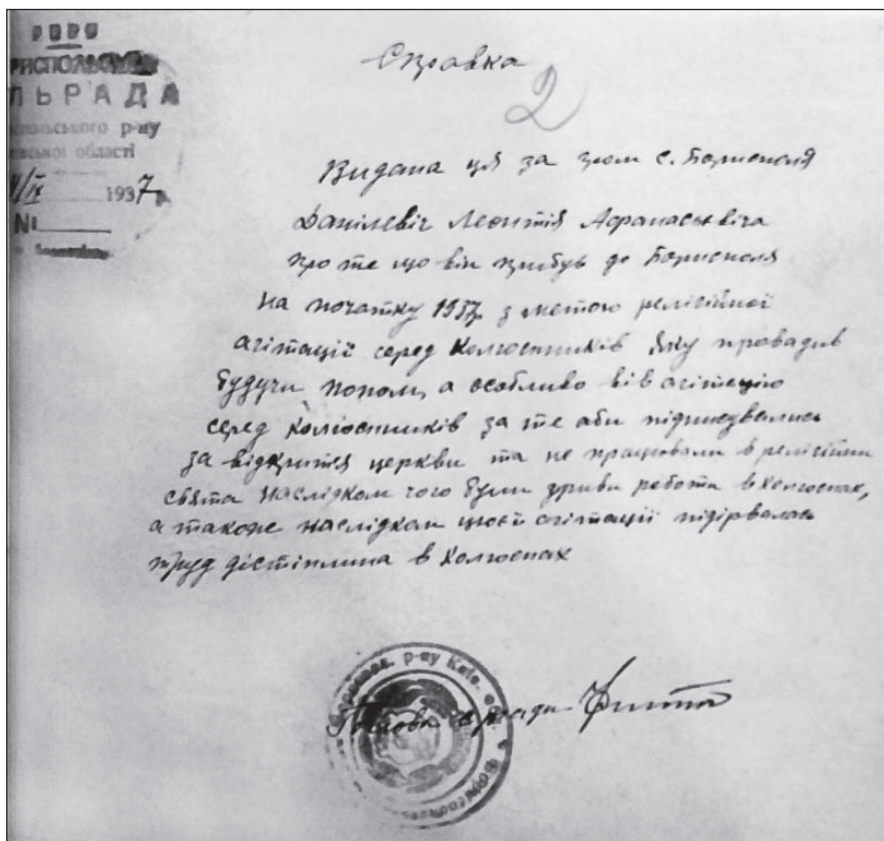 УСРР
РИСПОЛЬСЬКА
ЛЬРАДА
р-ну
області
/ІХ 1937 р.
№
Справка
2
Видана ця за гром с. Борисполя
Данілевіч Леонтія Афанасьевіча
про те що він прибув до Борисполя
на початку 1937 з метою релігійної
агітації серед колгоспників яку провадив
будучи попом, а особливо вів агітацію
серед колгоспників за те аби підписувались
за відкриття церкви та не працювали в релігійни
свята наслідком чого були зриви роботи в колгоспах,
а також наслідком цієї агітації підірвалась
труд дісціпліна в колгоспах
Голова с/ради
р-ну Київ.